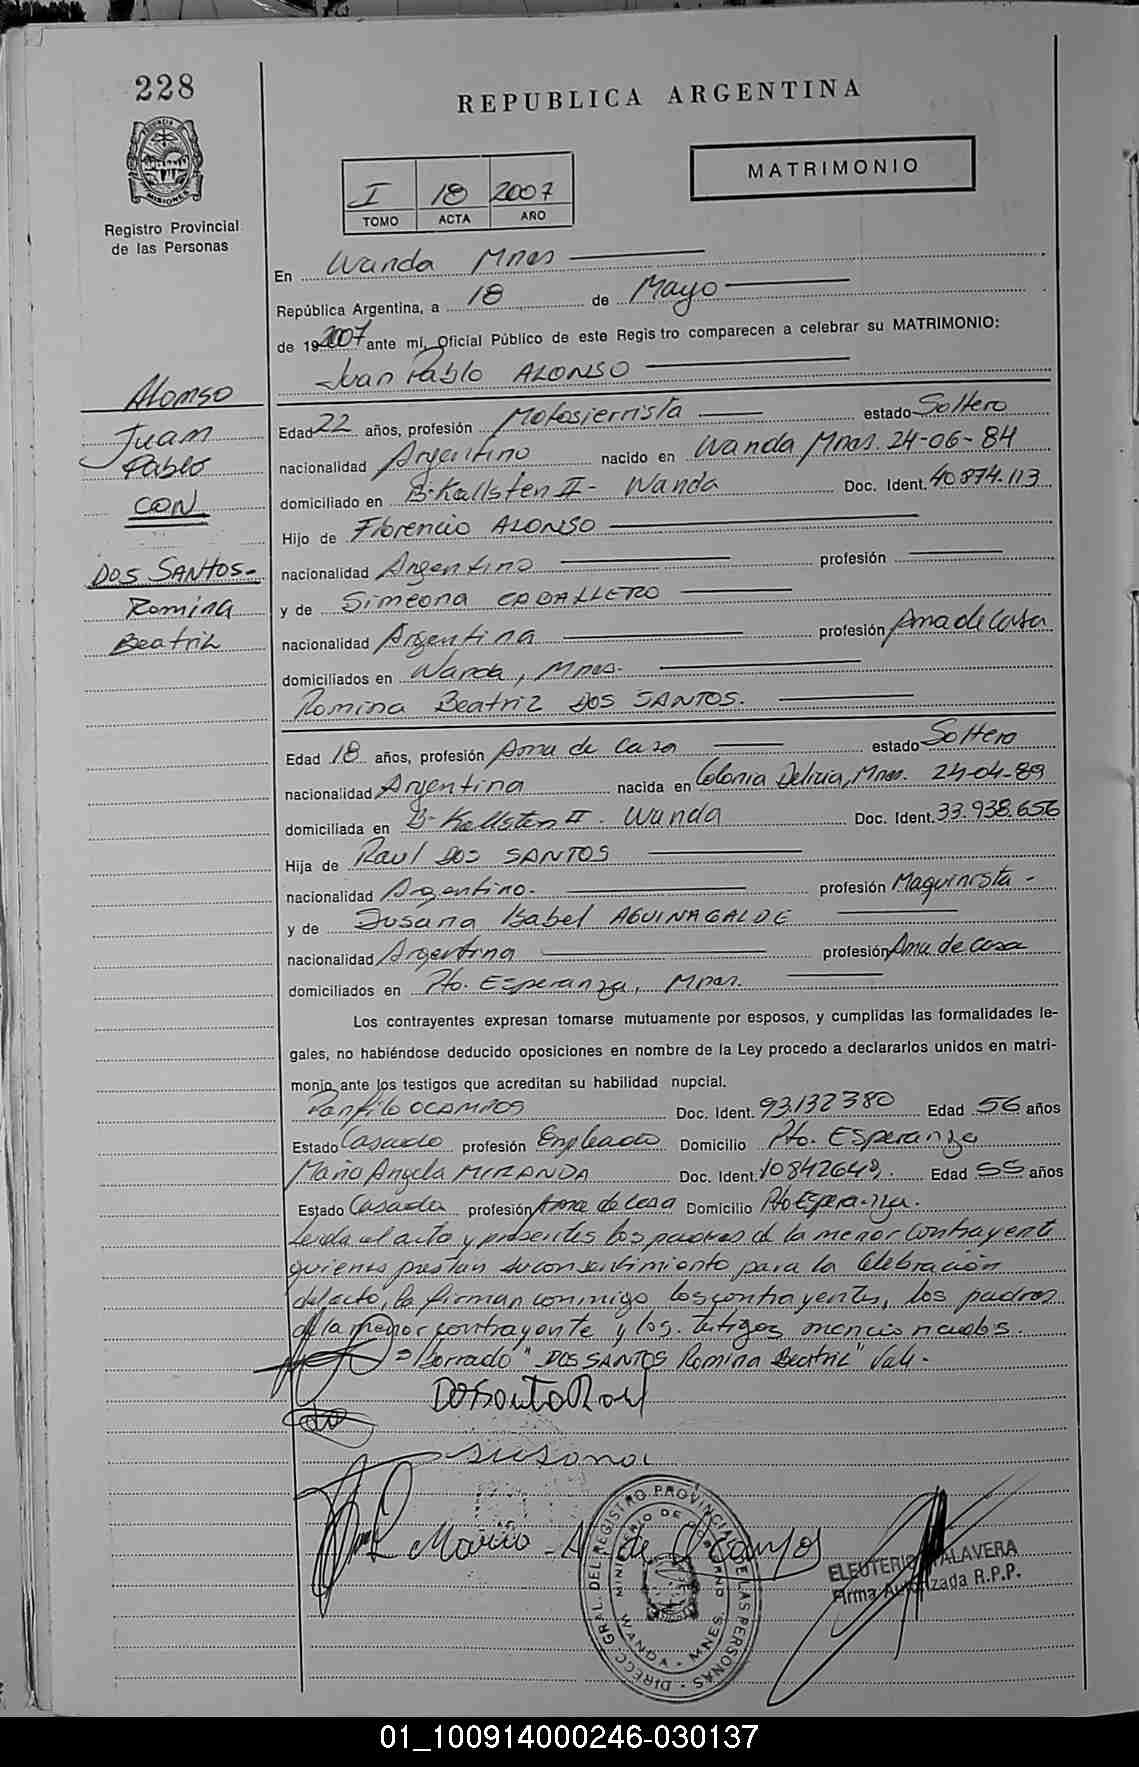 228
REPUBLICA ARGENTINA
PROVINCIA DE MISIONES
MATRIMONIO
Registro Provincial
de las Personas
I 18 2007
TOMO ACTA AÑO
En Wanda Mnes
República Argentina, a 18 de Mayo
de 19 2007 ante mí, Oficial Público de este Regis tro comparecen a celebrar su MATRIMONIO:
Juan Pablo ALONSO
Alonso
Juan
Pablo
CON
DOS SANTOS-
Romina
Beatriz
Edad 22 años, profesión Motosierrista estado Soltero
nacionalidad Argentino nacido en Wanda Mnes. 24-06-84
domiciliado en B- Kallsten II - Wanda Doc. Ident. 40874.113
Hijo de Florencio ALONSO
nacionalidad Argentino profesión
y de Simeona CABALLERO
nacionalidad Argentina profesión Ama de Casa
domiciliados en Wanda, Mnes.
Romina Beatriz DOS SANTOS.
Edad 18 años, profesión Ama de Casa estado Soltero
nacionalidad Argentina nacida en Colonia Delicia, Mnes. 24-04-89
domiciliada en B- Kallsten II. Wanda Doc. Ident. 33.938.656
Hija de Raul DOS SANTOS
nacionalidad Argentino. profesión Maquinista -
y de Susana Isabel AGUINAGALDE
nacionalidad Argentina profesión Ama de casa
domiciliados en Pto. Esperanza, Mnes.
Los contrayentes expresan tomarse mutuamente por esposos, y cumplidas las formalidades le-
gales, no habiéndose deducido oposiciones en nombre de la Ley procedo a declararlos unidos en matri-
monio ante los testigos que acreditan su habilidad nupcial.
Panfilo OCAMPOS Doc. Ident. 93.132380 Edad 56 años
Estado Casado profesión Empleado Domicilio Pto. Esperanza
Maria Angela MIRANDA Doc. Ident. 10842649. Edad 55 años
Estado Casada profesión Ama de Casa Domicilio Pto Esperanza.
Leída el acta y presentes los padres de la menor contrayente
quienes prestan su consentimiento para la Celebración
del acto, la firman conmigo los contrayentes, los padres
de la menor contrayente y los testigos mencionados.
= Borrado "DOS SANTOS Romina Beatriz" Vale -
Dosanto Raul
susana
Maria - A de Ocampos
DIRECC. GRAL. DEL REGISTRO PROVINCIAL DE LAS PERSONAS
MINISTERIO DE GOBIERNO
WANDA - MNES.
ELEUTERIO TALAVERA
Firma Autorizada R.P.P.
01_100914000246-030137